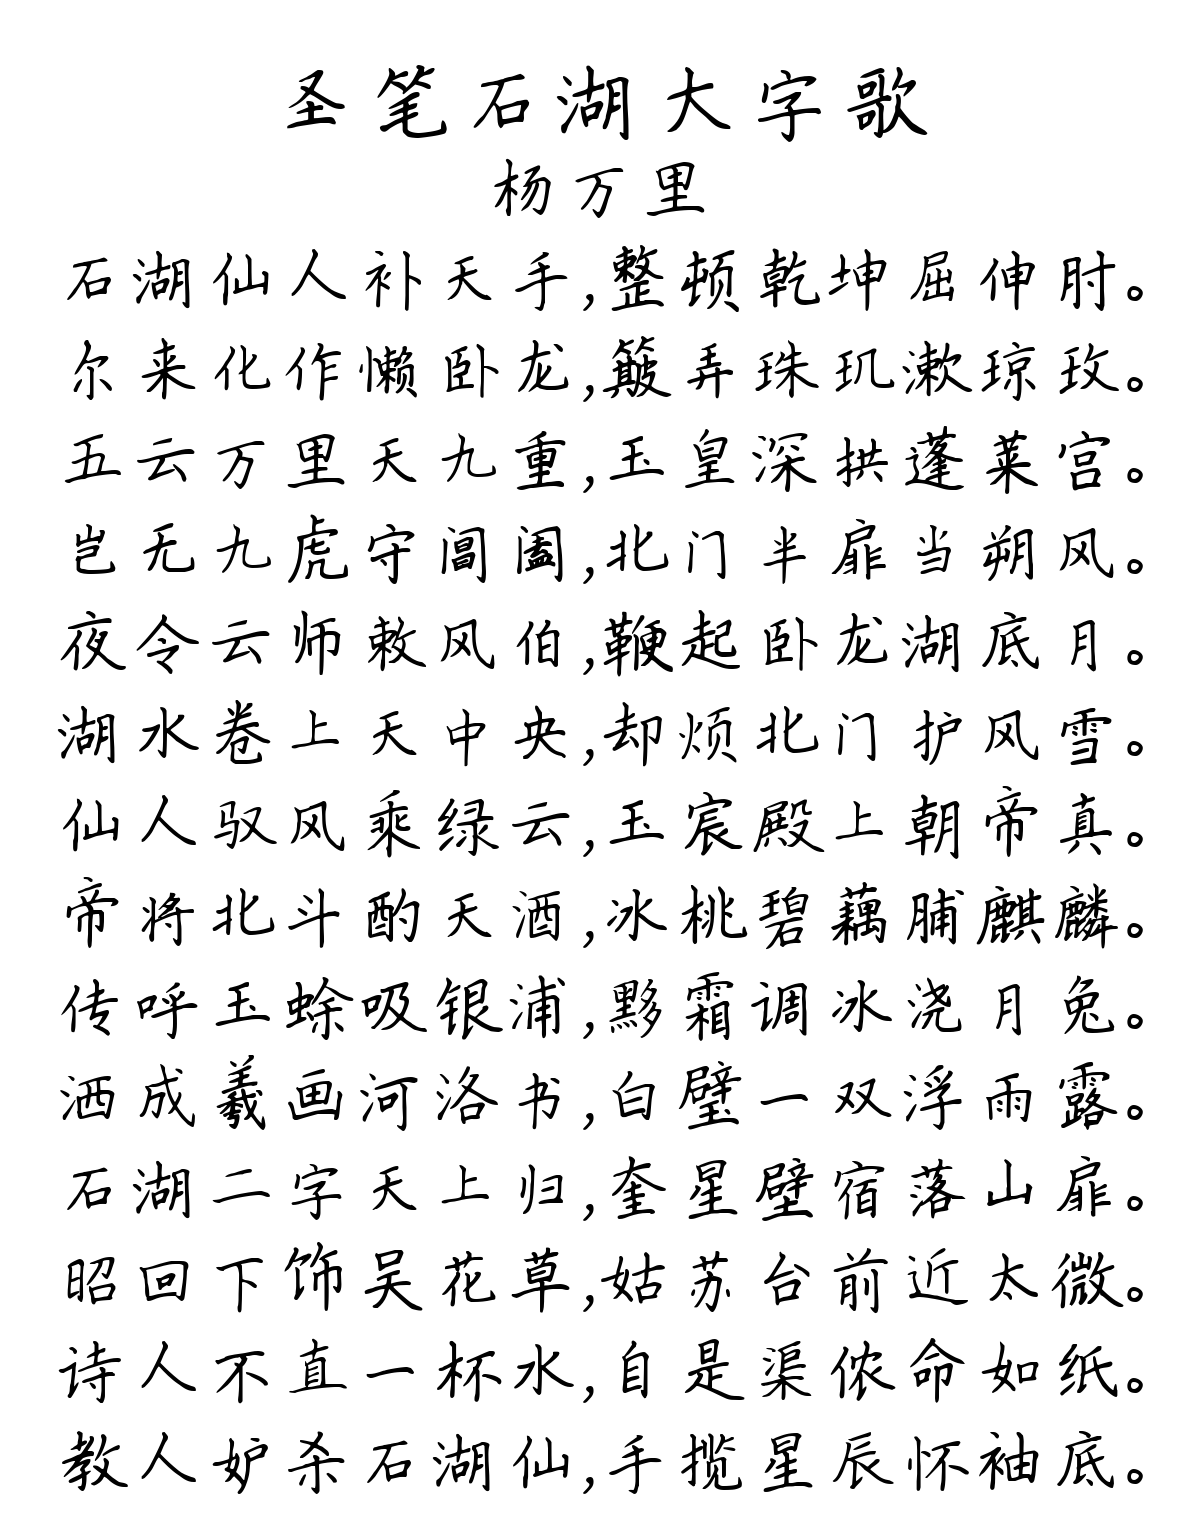 圣笔石湖大字歌
杨万里
石湖仙人补天手,整顿乾坤屈伸肘。
尔来化作懒卧龙,簸弄珠玑漱琼玫。
五云万里天九重,玉皇深拱蓬莱宫。
岂无九虎守阊阖,北门半扉当朔风。
夜令云师敕风伯,鞭起卧龙湖底月。
湖水卷上天中央,却烦北门护风雪。
仙人驭风乘绿云,玉宸殿上朝帝真。
帝将北斗酌天酒,冰桃碧藕脯麒麟。
传呼玉蜍吸银浦,黟霜调冰浇月兔。
洒成羲画河洛书,白璧一双浮雨露。
石湖二字天上归,奎星壁宿落山扉。
昭回下饰吴花草,姑苏台前近太微。
诗人不直一杯水,自是渠侬命如纸。
教人妒杀石湖仙,手揽星辰怀袖底。